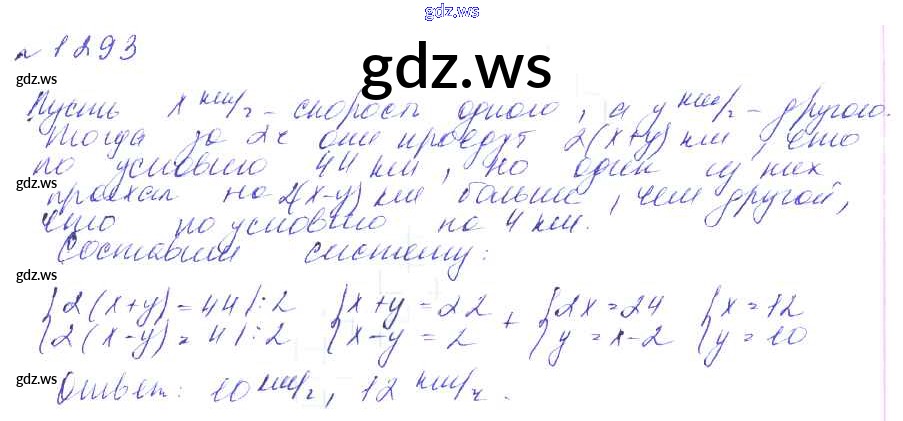 gdz.ws
№ 1293
gdz.ws
gdz.ws
gdz.ws
Пусть x км/ч - скорость одного, а y км/ч - другого.
Тогда за 2ч они проедут 2(x+y) км, что
по условию 44 км, но один из них
gdz.ws
gdz.ws
проехал на 2(x-y) км больше, чем другой,
что по условию на 4 км.
Составим систему:
gdz.ws
gdz.ws
{2(x+y)=44|:2 {x+y=22 {2x=24 {x=12
{2(x-y)=4|:2 {x-y=2 + {y=x-2 {y=10
gdz.ws
gdz.ws
Ответ: 10 км/ч, 12 км/ч.